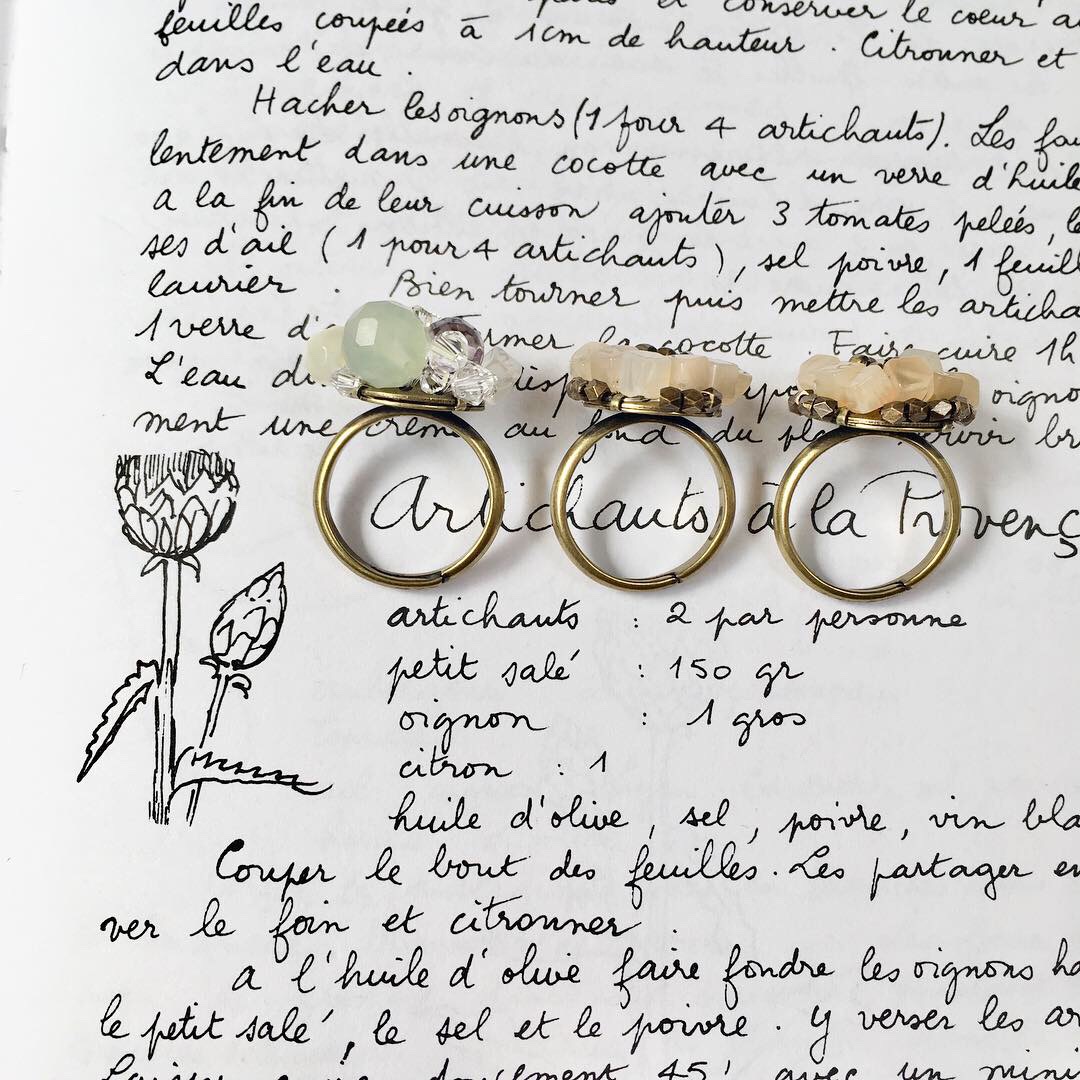 et conserver le coeur
feuilles coupées à 1cm de hauteur. Citronner et
dans l'eau.
Hacher les oignons (1 four 4 artichauts). Les
lentement dans une cocotte avec un verre d'huile
a la fin de leur cuisson ajouter 3 tomates pelées,
ses d'ail (1 pour 4 artichauts), sel poivre, 1
laurier. Bien tourner puis mettre les
1 verre cocotte. Faire cuire 1h
L'eau
ment une crème au fond du
Artichauts à la Provenç
artichauts : 2 par personne
petit salé : 150 gr
oignon : 1 gros
citron : 1
huile d'olive, sel, poivre, vin
Couper le bout des feuilles. Les partager en
ver le foin et citronner.
a l'huile d'olive faire fondre les oignons
le petit salé, le sel et le poivre. y verser les
45' avec un